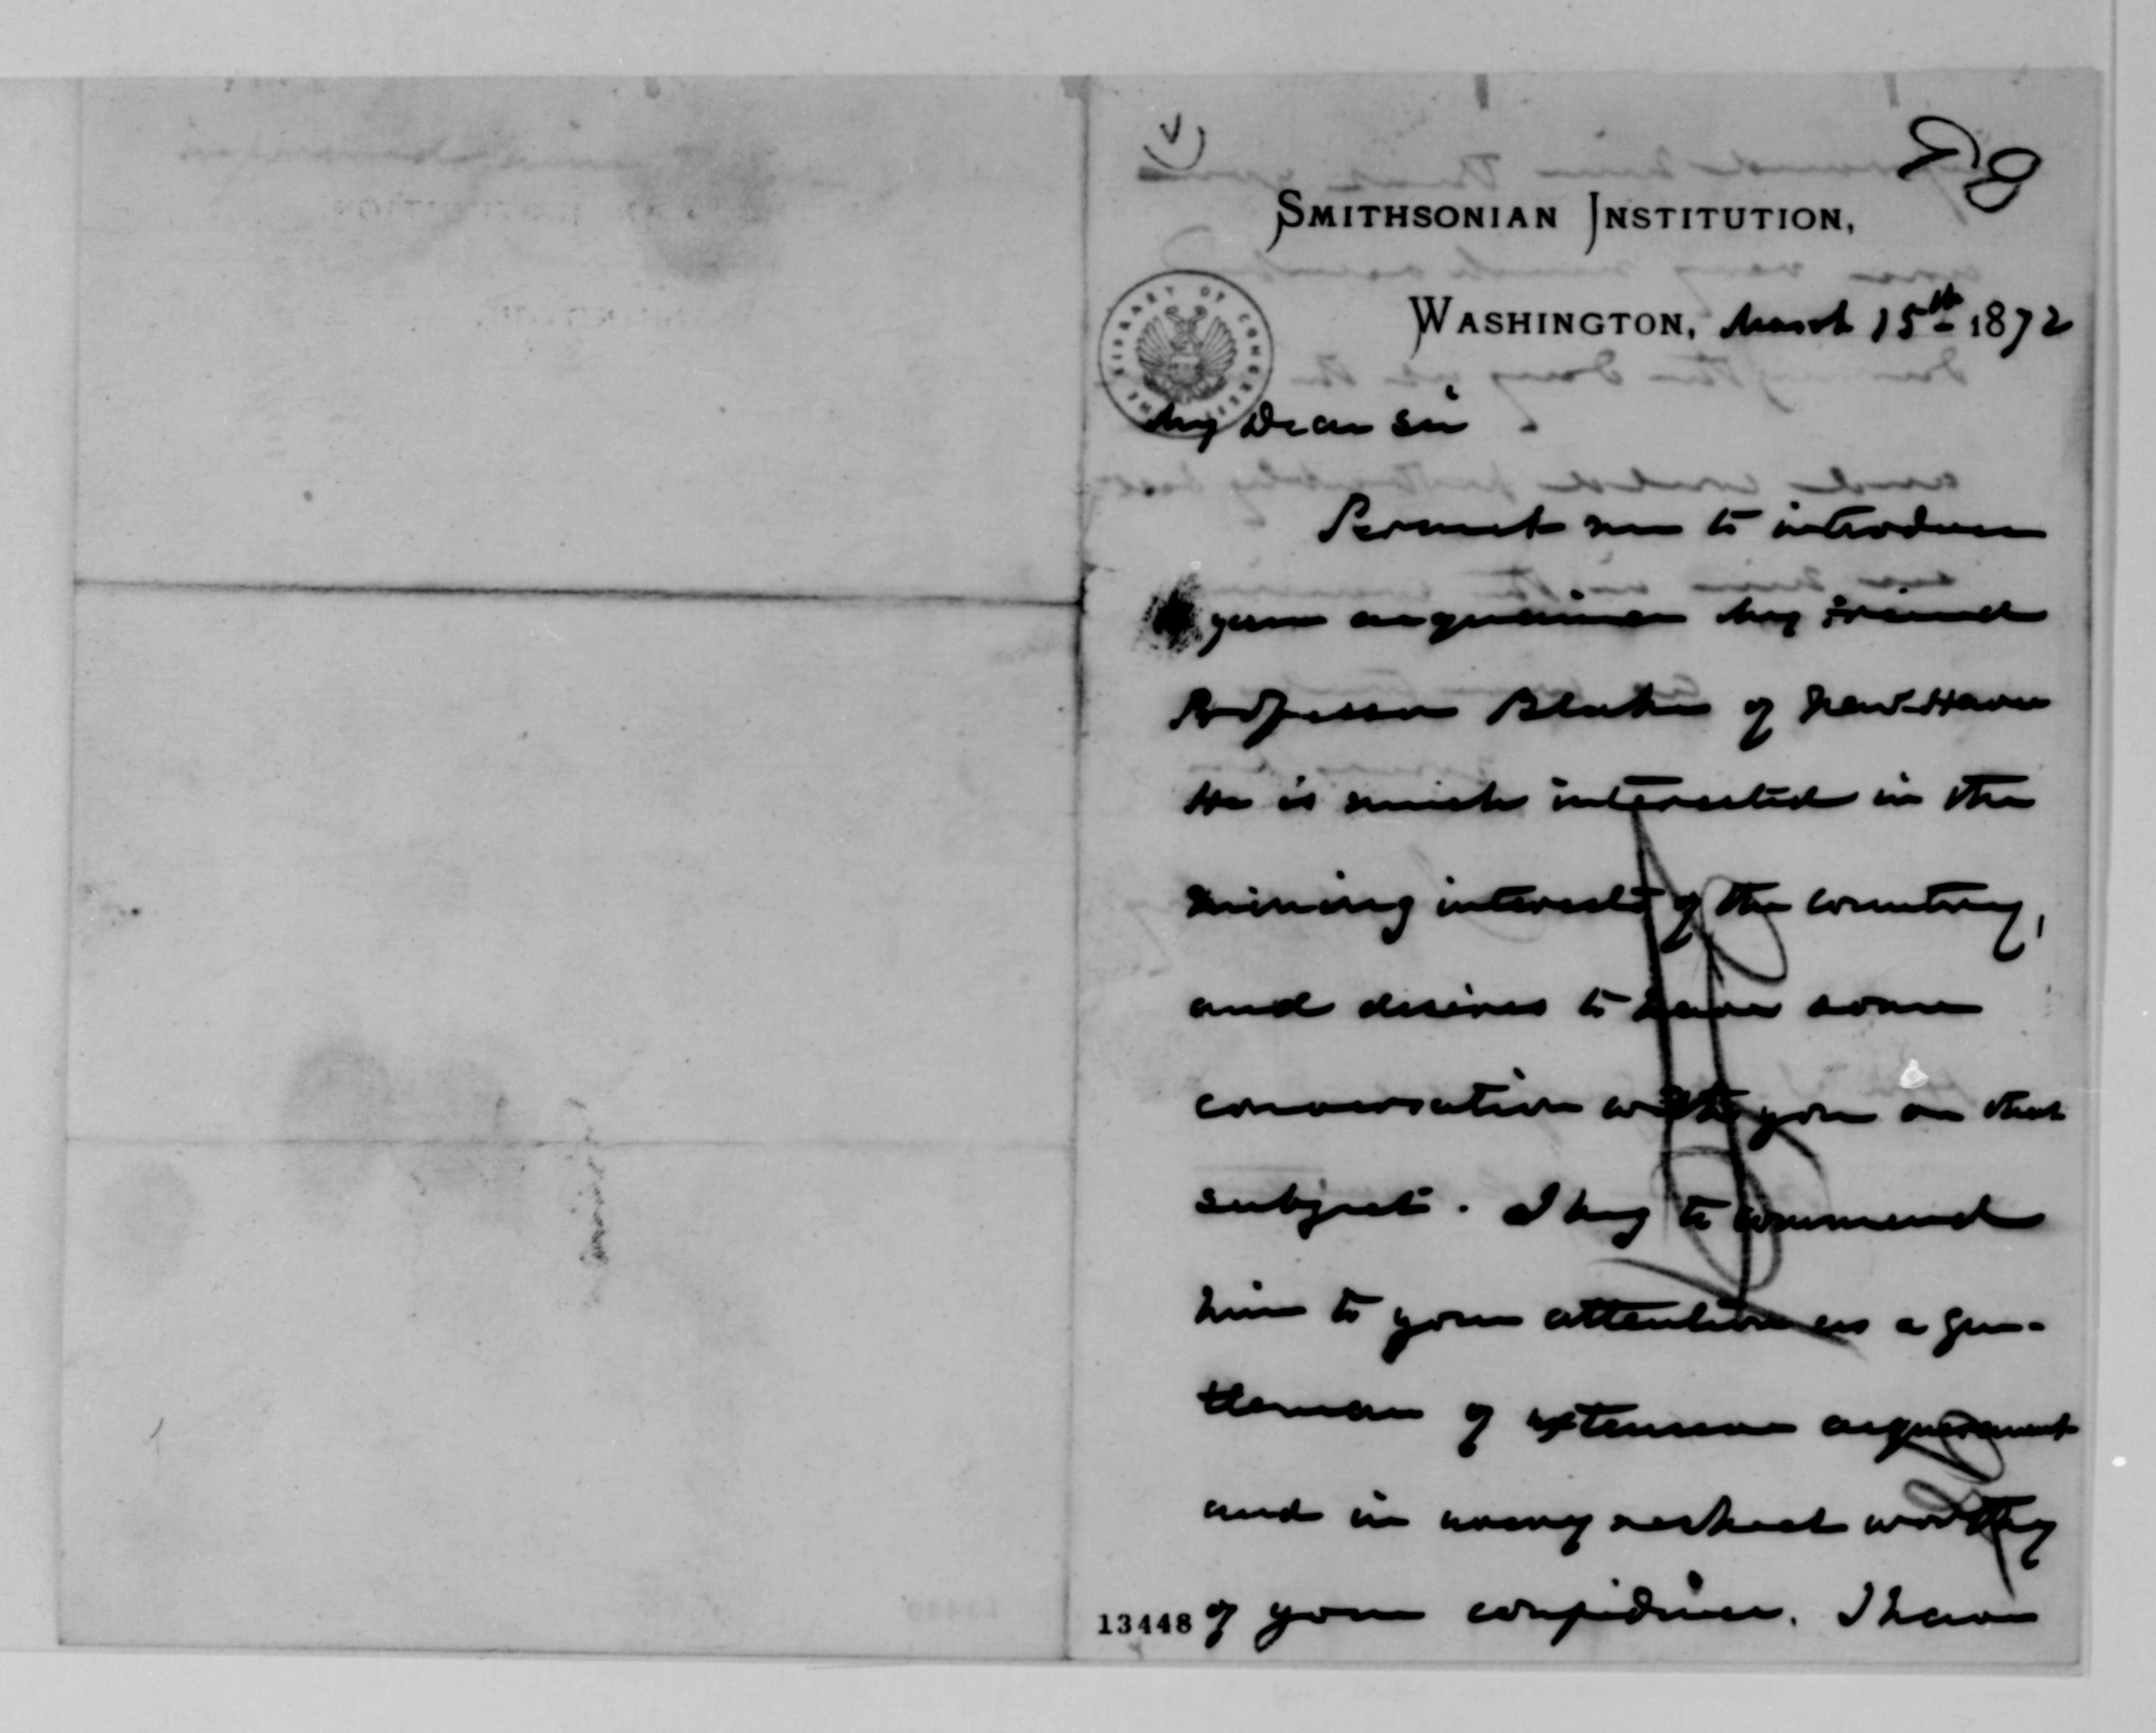 Smithsonian Institution,
Washington, March 15th 1872
THE LIBRARY OF CONGRESS
My Dear Sir
Permit me to introduce
your acquaintance my friend
Professor Blake of New-Haven
He is much interested in the
mining interests of the country,
and desires to have some
conversation with you on that
subject. I beg to commend
him to your attention as a gen-
tleman of extensive acquirement
and in every respect worthy
of your confidence. I have
13448